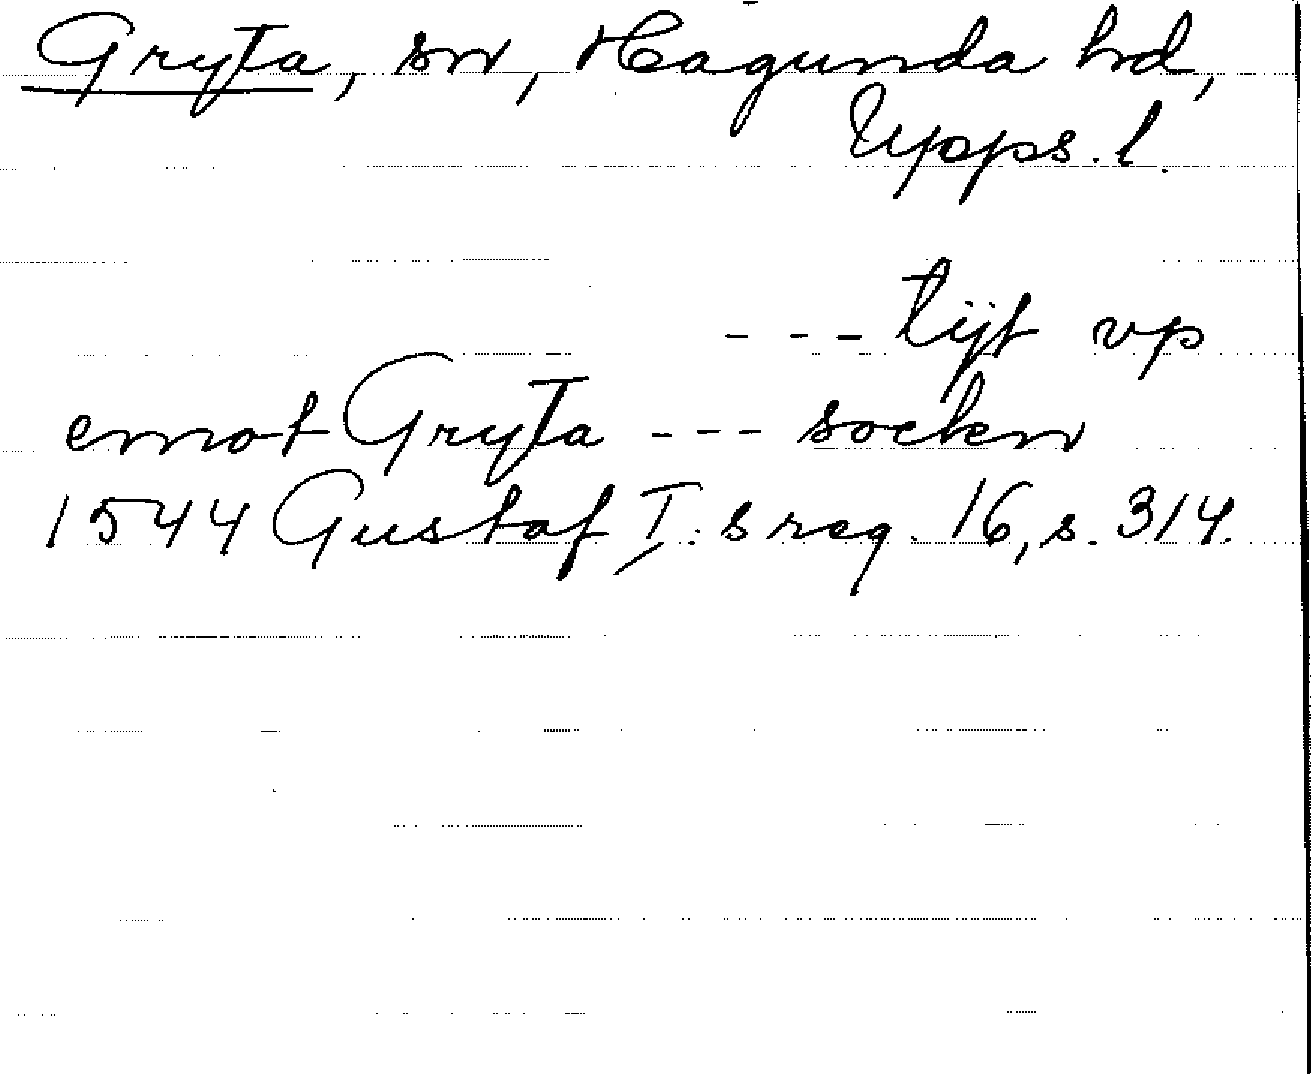 Gryta, sn, Hagunda hd,
Upps. l.
--- tijt vp
emot Gryta --- socken
1544 Gustaf I:s reg. 16, s. 314.